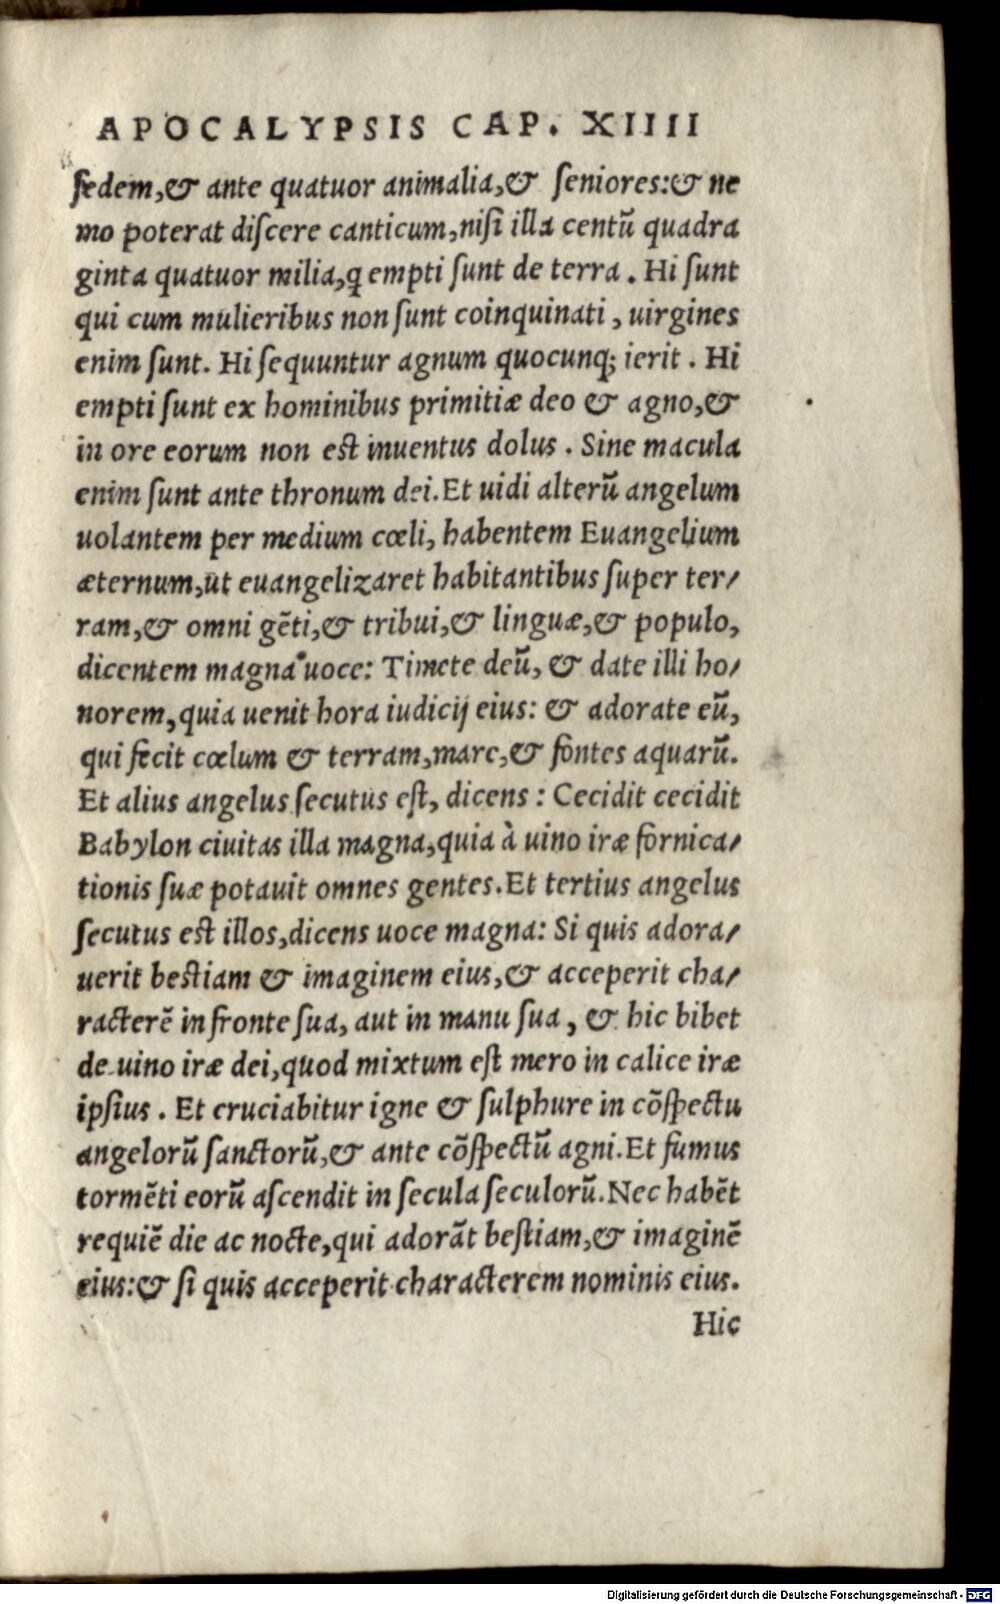 APOCALYPSIS CAP. XIIII
ſedem,& ante quatuor animalia,& ſeniores:& ne
mo poterat diſcere canticum,niſi illa centū quadra
ginta quatuor milia,ꝗ empti ſunt de terra . Hi ſunt
qui cum mulieribus non ſunt coinquinati , uirgines
enim ſunt. Hi ſequuntur agnum quocunq; ierit . Hi
empti ſunt ex hominibus primitiæ deo & agno,&
in ore eorum non est inuentus dolus . Sine macula
enim ſunt ante thronum dei.Et uidi alterū angelum
uolantem per medium cœli, habentem Euangelium
æternum,ut euangelizaret habitantibus ſuper ter/
ram,& omni gēti,& tribui,& linguæ,& populo,
dicentem magna uoce: Timete deū, & date illi ho/
norem,quia uenit hora iudicij eius: & adorate eū,
qui fecit cœlum & terram,mare,& fontes aquarū.
Et alius angelus ſecutus eſt, dicens : Cecidit cecidit
Babylon ciuitas illa magna,quia à uino iræ fornica/
tionis ſuæ potauit omnes gentes.Et tertius angelus
ſecutus est illos,dicens uoce magna: Si quis adora/
uerit bestiam & imaginem eius,& acceperit cha/
racterē in fronte ſua, aut in manu ſua , & hic bibet
de uino iræ dei,quod mixtum eſt mero in calice iræ
ipſius . Et cruciabitur igne & ſulphure in cōſpectu
angelorū ſanctorū,& ante cōſpectū agni.Et fumus
tormēti eorū aſcendit in ſecula ſeculorū.Nec habēt
requiē die ac nocte,qui adorāt beſtiam,& imaginē
eius:& ſi quis acceperit characterem nominis eius.
Hic
Digitalisierung gefördert durch die Deutsche Forschungsgemeinschaft - DFG